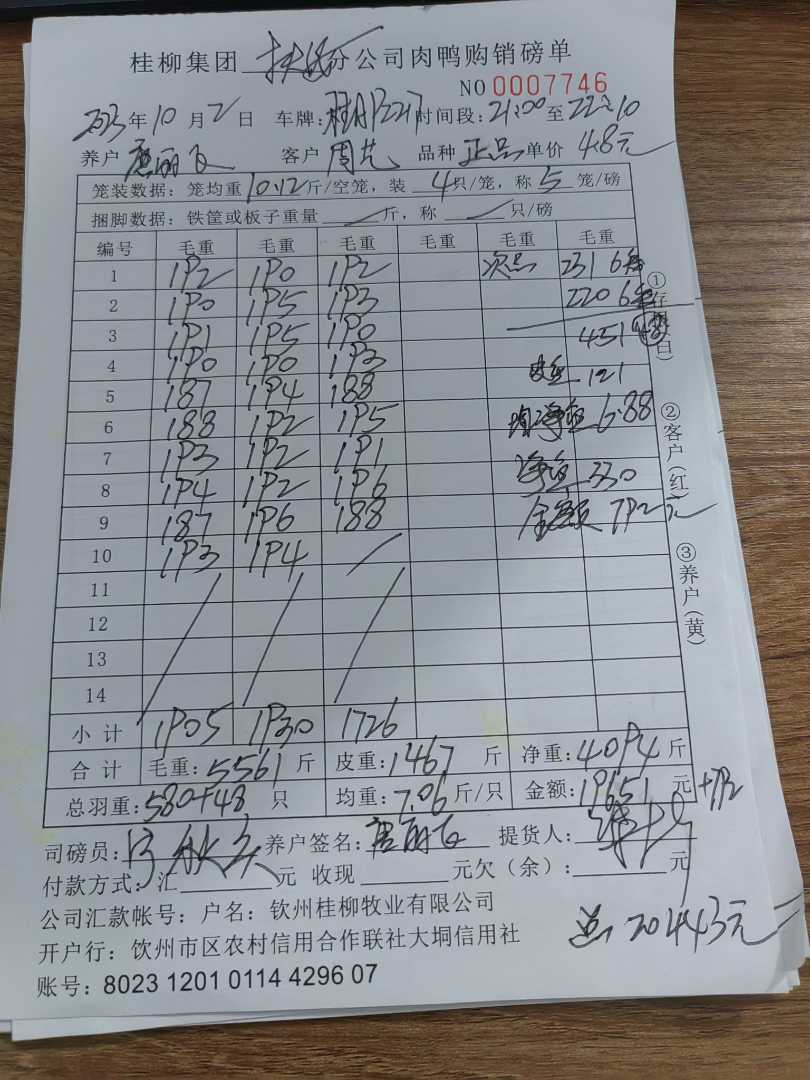 桂柳集团 扶绥 分公司肉鸭购销磅单
NO 0007746
2023年10月2日 车牌: 时间段:21:00至22:10
养户 唐丽飞 客户 周艺 品种 正品 单价 4.8元
笼装数据:笼均重10.12斤/空笼,装 4只/笼,称 5 笼/磅
捆脚数据:铁筐或板子重量 / 斤,称 / 只/磅
编号 毛重 毛重 毛重 毛重 毛重 毛重
1 192 190 192 次品 231 6笼
2 190 195 193 220 6笼
3 191 195 190 451 48
4 190 190 193 皮重 121
5 187 194 188
6 188 192 195 均净重 6.88
7 193 192 191
8 194 192 196 净重 330
9 187 196 188 金额 792元
10 193 194 /
11
12
13
14
小计 1905 1930 1726
合计 毛重:5561斤 皮重:1467斤 净重:4094斤
总羽重:580+48只 均重:7.06斤/只 金额:19651元 +792
司磅员: 养户签名:唐丽飞 提货人:
付款方式:汇 元 收现 元欠(余): 元
公司汇款帐号:户名:钦州桂柳牧业有限公司
总 20443元
开户行:钦州市区农村信用合作联社大垌信用社
账号:8023 1201 0114 4296 07
①存根(白)
②客户(红)
③养户(黄)